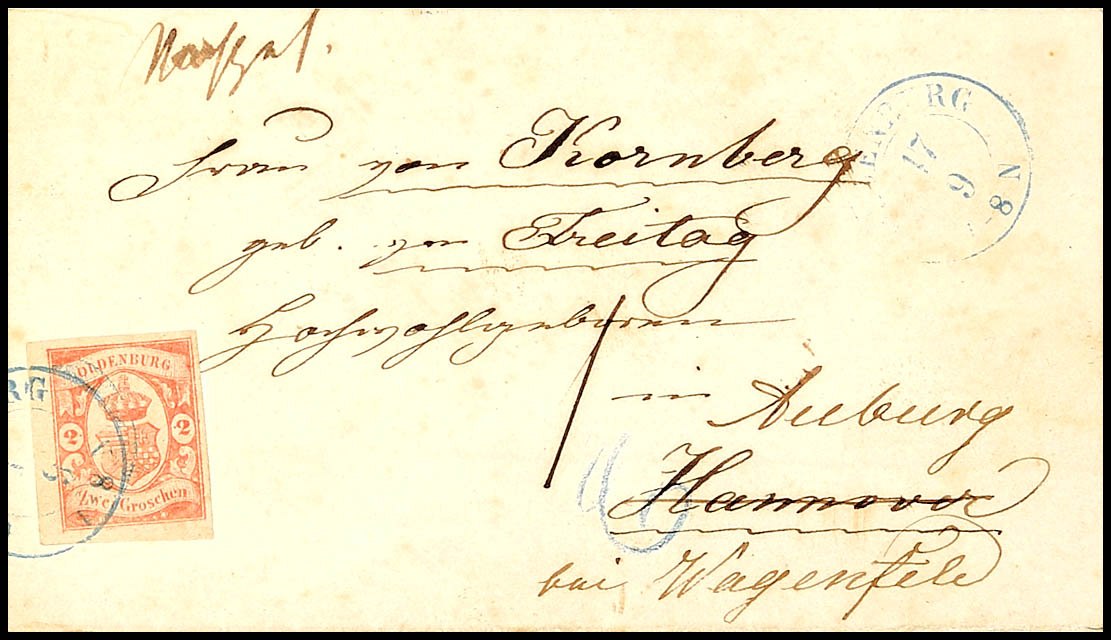 Frau von Kornberg
geb. von Freitag
Hochwohlgeboren
in Auburg
Hannover
bei Wagenfeld
RG
17
9
8
N
OLDENBURG
2 2
Zwei Groschen
RG